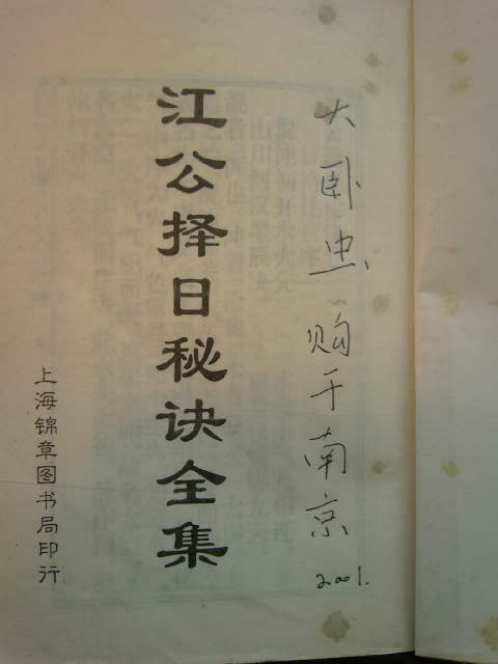 大卧虫
购于南京
2001.
江公择日秘诀全集
上海锦章图书局印行